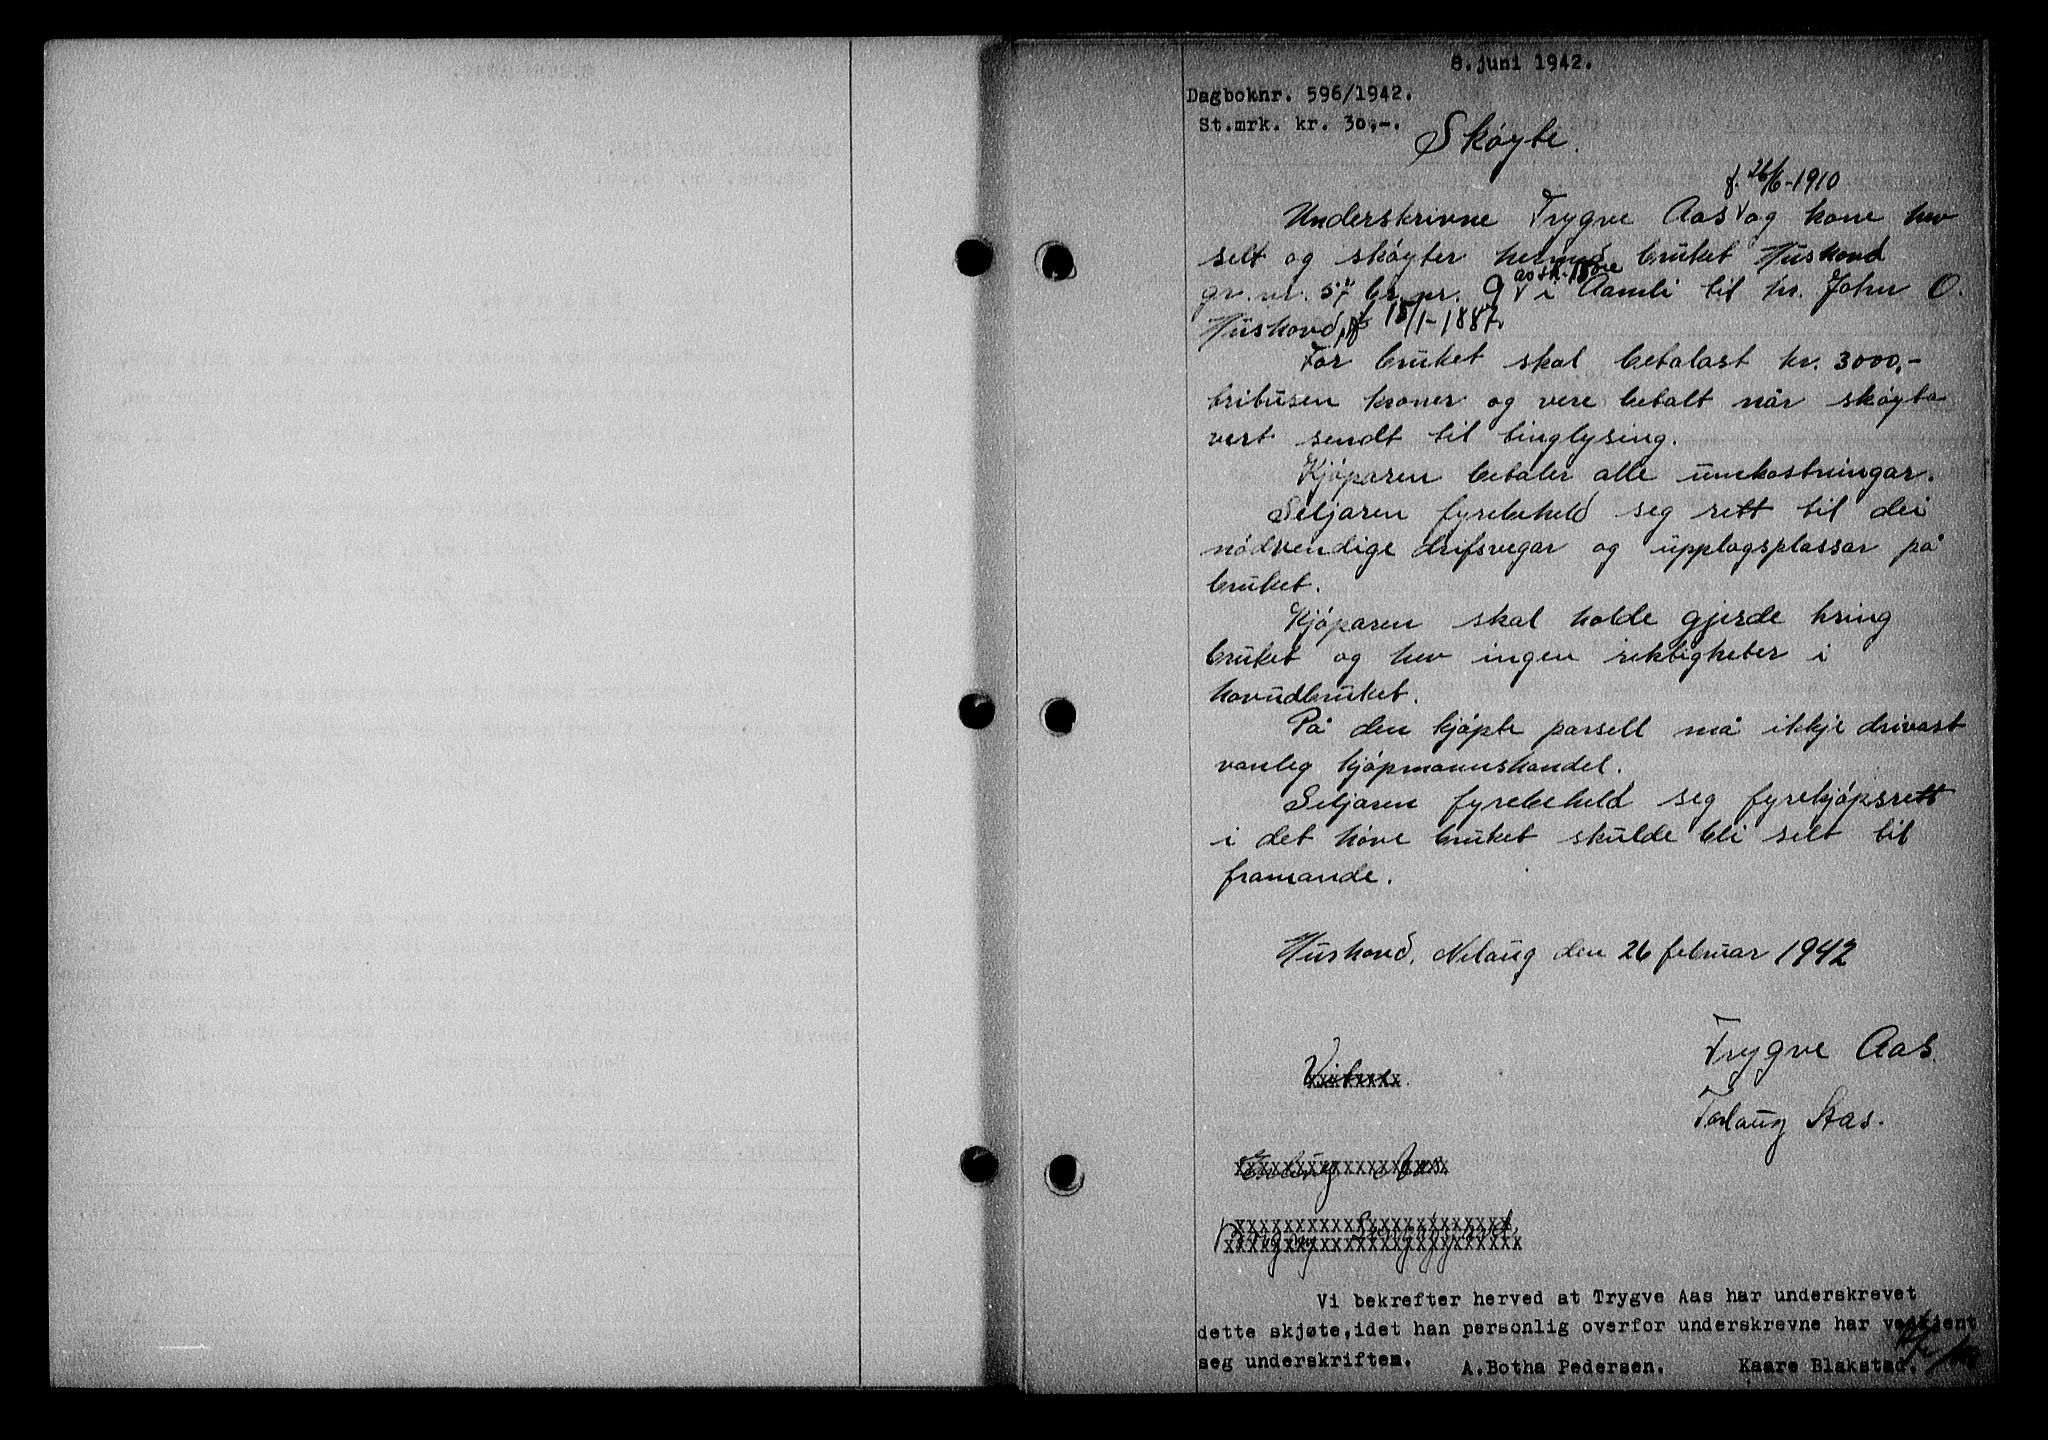 8.juni 1942.
Dagboknr. 596/1942.
St.mrk. kr. 30,-.
Skøyte.
f. 26/6-1910
Underskrivne Trygve Aas og kone hev
selt og skøyter hermed bruket Huskovd
as sk. 15 øre
gr. nr. 57 br. nr. 9 i Aamli til hr. John O.
Huskovd, f. 15/1-1887.
For bruket skal betalast kr. 3000,-
tritusen kroner og vere betalt når skøyta
vert sendt til tinglysing.
Kjøparen betaler alle umkostningar.
Seljaren fyrebeheld seg rett til dei
nødvendige drifsvegar og upplagsplassar på
bruket.
Kjøparen skal holde gjerde kring
bruket og hev ingen rektigheter i
hovudbruket.
På den kjøpte parsell må ikkje drivast
vanleg kjøpmannshandel.
Seljaren fyrebeheld seg fyrekjøpsrett
i det høve bruket skulde bli selt til
framande.
Huskovd, Nelaug den 26 februar 1942
Trygve Aas.
Vitne.
Torlaug Aas.
Aas
Vi bekrefter herved at Trygve Aas har underskrevet
dette skjøte,idet han personlig overfor underskrevne har vedkjent
seg underskriften.
A.Botha Pedersen. Kaare Blakstad.